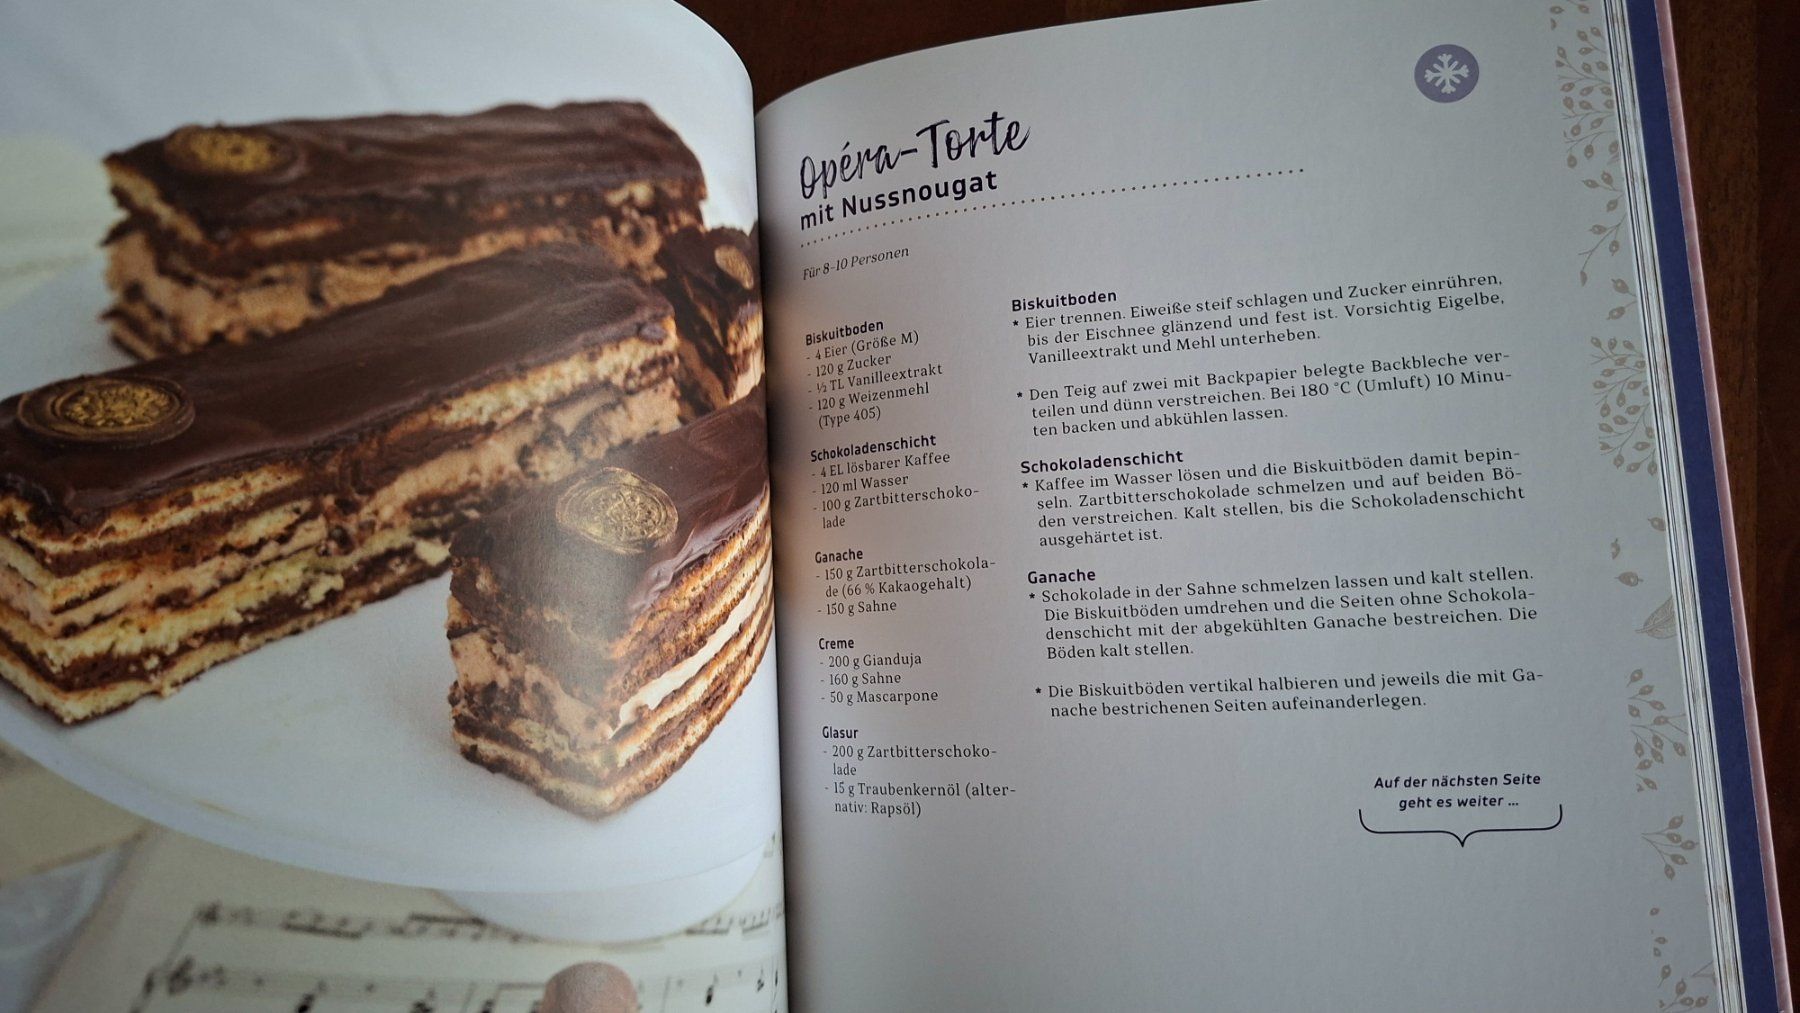 Opéra-Torte
mit Nussnougat
Für 8-10 Personen
Biskuitboden
- 4 Eier (Größe M)
- 120 g Zucker
- ½ TL Vanilleextrakt
- 120 g Weizenmehl
(Type 405)
Schokoladenschicht
- 4 EL lösbarer Kaffee
- 120 ml Wasser
- 100 g Zartbitterschoko-
lade
Ganache
- 150 g Zartbitterschokola-
de (66 % Kakaogehalt)
- 150 g Sahne
Creme
- 200 g Gianduja
- 160 g Sahne
- 50 g Mascarpone
Glasur
- 200 g Zartbitterschoko-
lade
- 15 g Traubenkernöl (alter-
nativ: Rapsöl)
Biskuitboden
* Eier trennen. Eiweiße steif schlagen und Zucker einrühren,
bis der Eischnee glänzend und fest ist. Vorsichtig Eigelbe,
Vanilleextrakt und Mehl unterheben.
* Den Teig auf zwei mit Backpapier belegte Backbleche ver-
teilen und dünn verstreichen. Bei 180 °C (Umluft) 10 Minu-
ten backen und abkühlen lassen.
Schokoladenschicht
* Kaffee im Wasser lösen und die Biskuitböden damit bepin-
seln. Zartbitterschokolade schmelzen und auf beiden Bö-
den verstreichen. Kalt stellen, bis die Schokoladenschicht
ausgehärtet ist.
Ganache
* Schokolade in der Sahne schmelzen lassen und kalt stellen.
Die Biskuitböden umdrehen und die Seiten ohne Schokola-
denschicht mit der abgekühlten Ganache bestreichen. Die
Böden kalt stellen.
* Die Biskuitböden vertikal halbieren und jeweils die mit Ga-
nache bestrichenen Seiten aufeinanderlegen.
Auf der nächsten Seite
geht es weiter ...